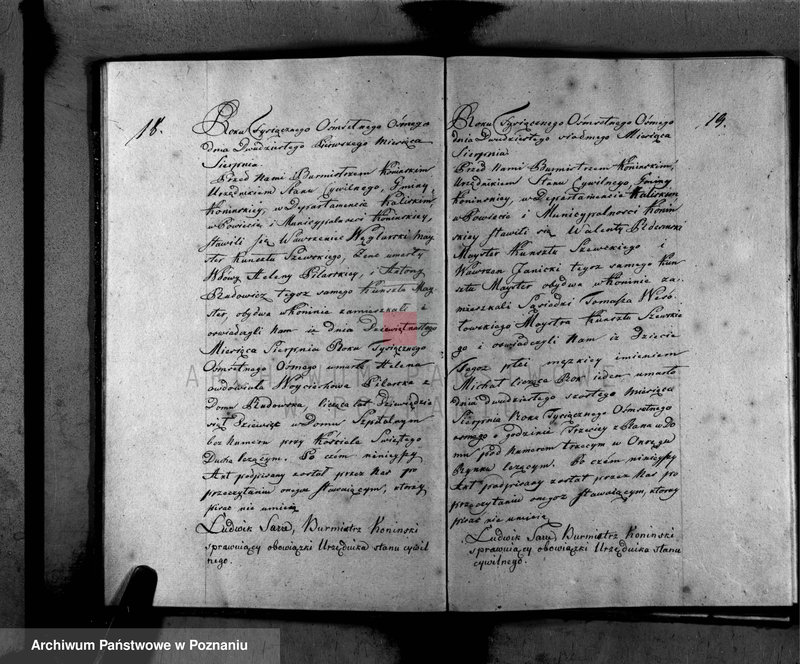 18.
Roku Tysiącznego Ośmsetnego Osmego
dnia Dwudziestego Pierwszego Miesiąca
Sierpnia.
Przed Nami Burmistrzem Konińskim
Urzędnikiem Stanu Cywilnego, Gminy
Konińskiey, w Departamencie Kaliskim,
w Powiecie i Municypalności Konińskiey,
stawili się Wawrzeniec Węglarski may
ster Kunsztu Szewskiego, umarły
Wdowy Heleny Pilarskiey, i Antony
Radowicz tegoz samego Kunsztu May
ster, obydwa w Koninie zamieszkali i
oświadczyli Nam iż dnia Dziewiętnastego
Miesiąca Sierpnia Roku Tysiącznego
Ośmsetnego Osmego umarła Helena
owdowiała Woyciechowa Pilarska z
Domu Radowska, licząca lat Dziewiędzie
siąt Dziewięć w Domu Szpitalnym
bez Numeru przy Kościele Świętego
Ducha leżącym. Po czém ninieyszy
Akt podpisany został przez Nas po
przeczytaniu onego stawaiącym, którzy
pisać nie umieią
Ludwik Burmistrz Koninski
sprawuiący obowiązki Urzędnika stanu cywil
nego.
19.
Roku Tysiącznego Ośmsetnego Osmego
dnia Dwudziestego siodmego Miesiąca
Sierpnia
Przed Nami Burmistrzem Konińskim,
Urzędnikiem Stanu Cywilnego, Gminy
Konińskiey, w Departamencie Kaliskim
w Powiecie i Municypalności Konin
skiey stawili się Walenty
Mayster Kunsztu Szewckiego i
Wawrzyn Janicki tegoz samego Kun
sztu Mayster obydwa w Koninie za
mieszkali Sąsiedzi Tomasza Weso
łowskiego Maystra Kunsztu Szewskie
go i oświadczyli Nam iż Dziecie
Tegoz płci męzkiey imieniem
Michał licząca Rok ieden umarło
dnia Dwudziestego szostego miesiąca
Sierpnia Roku Tysiącznego Ośmsetnego
osmego o godzinie Trzeciey z Rana w do
mu pod Numerem trzecim w
Rynku leżącym. Po czém ninieyszy
Akt podpisany został przez Nas po
przeczytaniu onegoz stawaiącym, którzy
pisać nie umieią
Ludwik Burmistrz Koninski
sprawuiący obowiązki Urzędnika stanu
cywilnego.
Archiwum Państwowe w Poznaniu